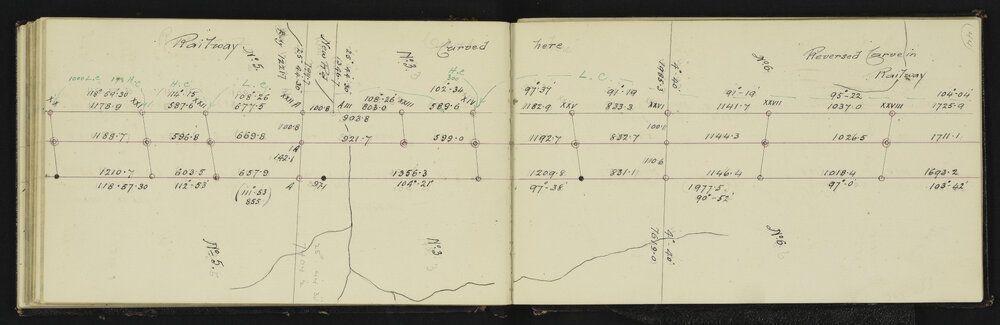 Railway
Curved
here
Reversed Curve in
Railway
No. 5.
No. 3
No. 6
1000 L.C.
H.C.
H.C.
L.C.
H.C.
L.C.
118° 15'
108° 26'
108° 26'
102.34
97° 37'
91° 19
91°-19'
95°-22
104°-04'
XX
1178.9
XXI
587.6
XXII
677.5
XXII A
100.8
A III
803.0
XXIII
589.6
XXIV
1182.9
XXV
833.3
XXVI
1141.7
XXVII
1037.0
XXVIII
1725.9
903.8
100.8
100.1
1189.7
596.8
669.8
921.7
599.0
1192.7
832.7
1144.3
1026.5
1711.1
1A
142.1
110.6
1210.7
603.5
657.9
1356.3
1209.8
831.1
1146.4
1018.4
1693.2
118.57.30
112°-53'
(111°-53)
855
A
971
104°-21'
97°-38'
1977.5
90°-52'
97°-0'
103°-42'
4° 40'
1985.3
4° 40'
7619.0
No. 5
No. 3
No. 6